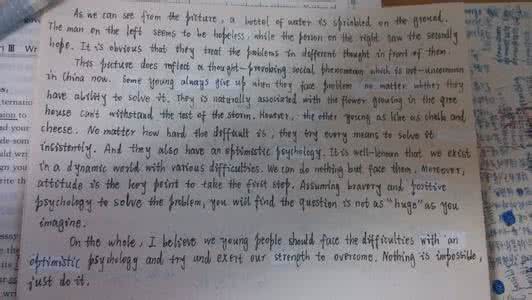 As we can see from the picture, a bottel of water is sprinkled on the ground.
The man on the left seems to be hopeless, while the person on the right saw the secondly
hope. It is obvious that they treat the problems in different thought in front of them.
This picture does reflect a thought-provobing social phenomenon which is not-uncommon
in China now. Some young always give up when they face problem no matter whther they
have ability to solve it. They is naturally associated with the flower growing in the gree
house can't withstand the test of the storm. However, the other young as like as chalk and
cheese. No matter how hard the deffault is, they try every means to solve it
insistently. And they also have an optimistic psychology. It is well-known that we exist
in a dynamic world with various difficulties. We can do nothing but face them. Moreover,
attitude is the key point to take the first step. Assuming bravery and positive
psychology to solve the problem, you will find the question is not as "huge" as you
imagine.
On the whole, I believe we young people should face the difficulties with an
optimistic psychology and try and exert our strength to overcome. Nothing is impossible,
just do it.